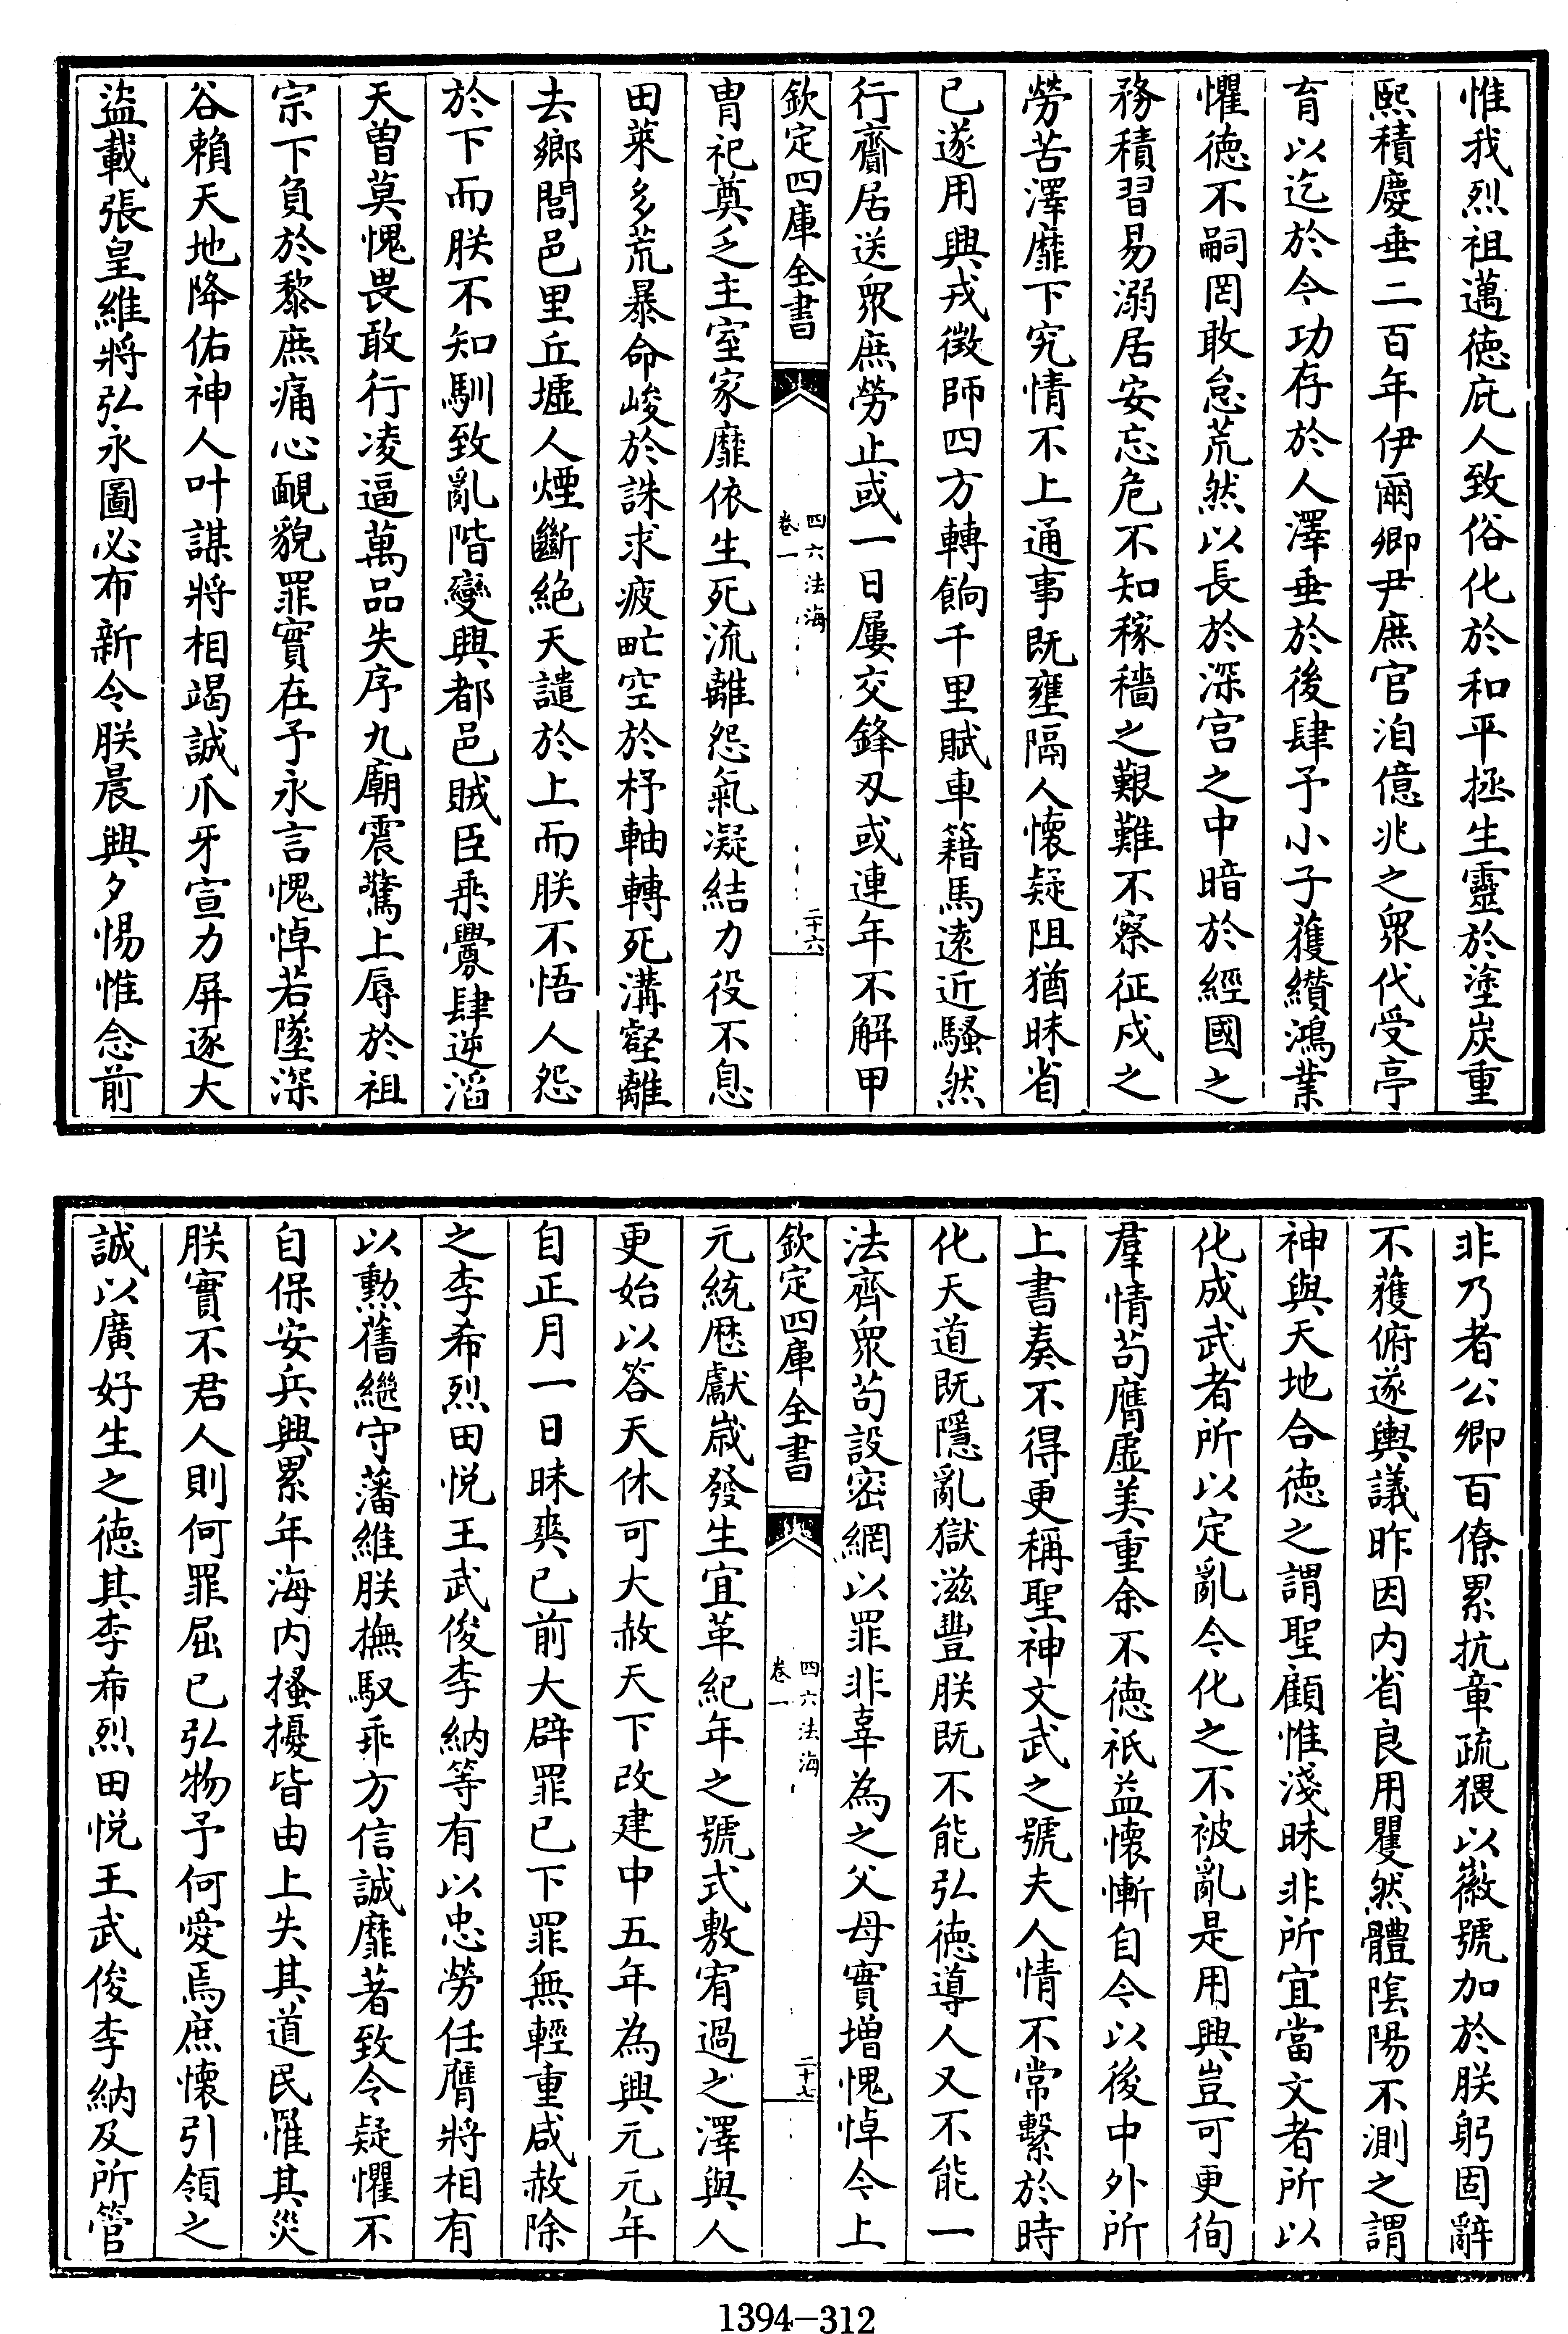 惟我烈祖邁徳庇人致俗化於和平拯生靈於塗炭重
熙積慶垂二百年伊爾卿尹庶官洎億兆之衆代受亭
育以迄於今功存於人澤垂於後肆予小子獲纉鴻業
懼徳不嗣罔敢怠荒然以長於深宫之中暗於經國之
務積習易溺居安忘危不知稼穡之艱難不察征戍之
勞苦澤靡下究情不上通事既壅隔人懐疑阻猶昧省
已遂用興戎徴師四方轉餉千里賦車籍馬逺近騷然
行齎居送衆庶勞止或一日屢交鋒刄或連年不解甲
欽定四庫全書
四六法海
卷一
二十六
胄祀奠乏主室家靡依生死流離怨氣凝結力役不息
田萊多荒暴命峻於誅求疲甿空於杼軸轉死溝壑離
去鄉閭邑里丘墟人煙斷絶天譴於上而朕不悟人怨
於下而朕不知馴致亂階變興都邑賊臣乗釁肆逆滔
天曽莫愧畏敢行凌逼萬品失序九廟震驚上辱於祖
宗下負於黎庶痛心靦貌罪實在予永言愧悼若墜深
谷賴天地降佑神人叶謀將相竭誠爪牙宣力屏逐大
盜載張皇維將弘永圖必布新令朕晨興夕惕惟念前
非乃者公卿百僚累抗章疏猥以徽號加於朕躬固辭
不獲俯遂輿議昨因内省良用瞿然體陰陽不測之謂
神與天地合徳之謂聖顧惟淺昧非所宜當文者所以
化成武者所以定亂今化之不被亂是用興豈可更徇
羣情苟膺虚美重余不徳祇益懐慚自今以後中外所
上書奏不得更稱聖神文武之號夫人情不常繫於時
化天道既隱亂獄滋豐朕既不能弘徳導人又不能一
法齊衆苟設密網以罪非辜為之父母實増愧悼今上
欽定四庫全書
四六法海
卷一
二十七
元統厯獻嵗發生宜革紀年之號式敷宥過之澤與人
更始以答天休可大赦天下改建中五年為興元元年
自正月一日昧爽已前大辟罪已下罪無輕重咸赦除
之李希烈田悦王武俊李納等有以忠勞任膺將相有
以勲舊繼守藩維朕撫馭乖方信誠靡著致令疑懼不
自保安兵興累年海内搔擾皆由上失其道民罹其災
朕實不君人則何罪屈已弘物予何愛焉庶懐引領之
誠以廣好生之徳其李希烈田悦王武俊李納及所管
1394-312